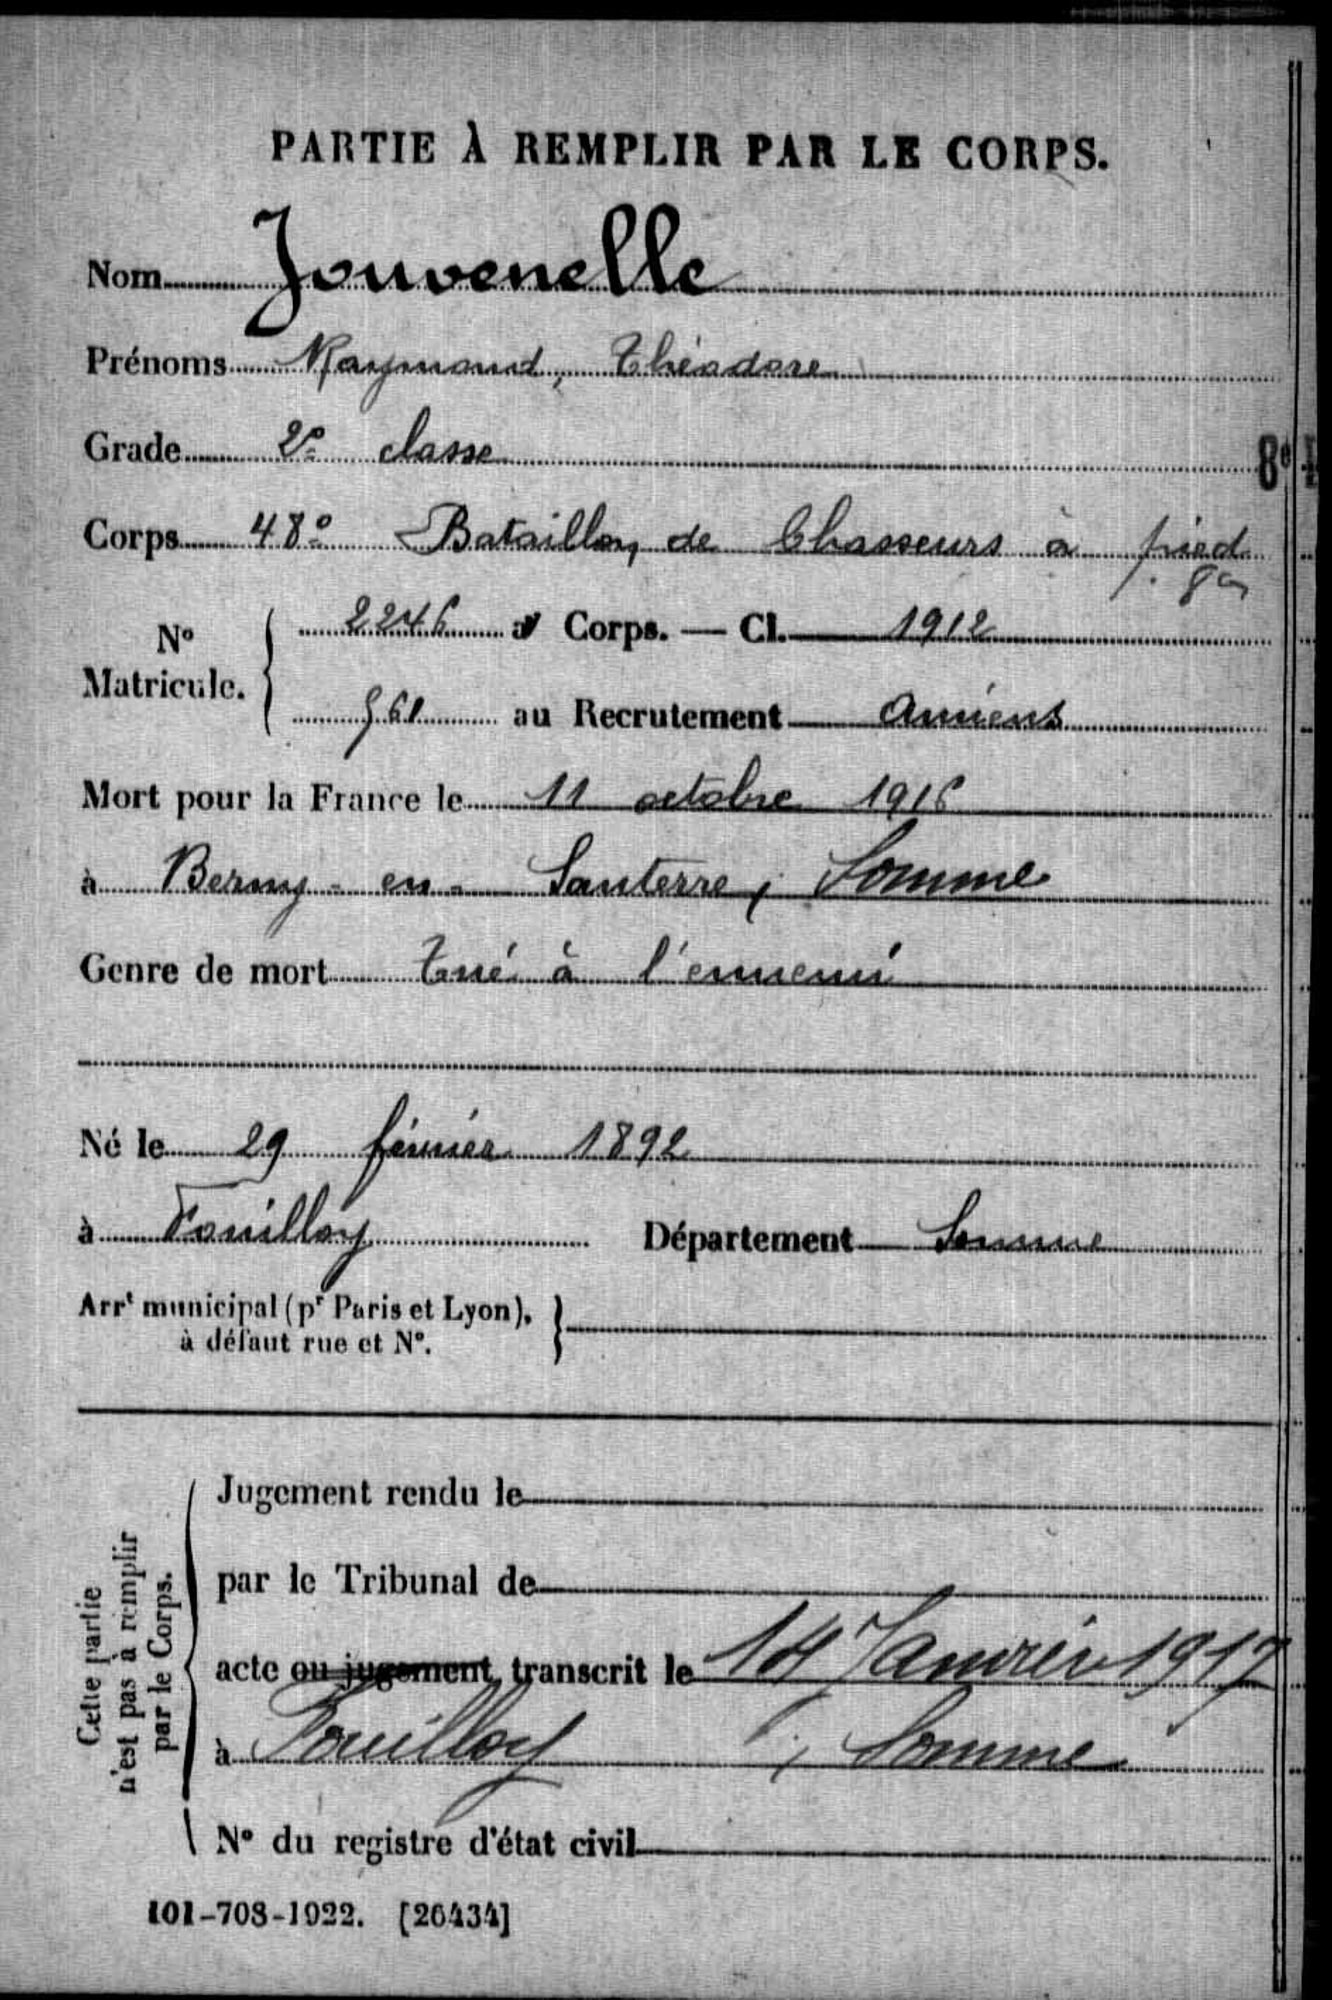 PARTIE À REMPLIR PAR LE CORPS.
Nom Jouvenelle
Prénoms Raymond, Théodore
Grade 2e classe
8e
Corps 48e Bataillon de Chasseurs à pied
N° Matricule. { 2246 au Corps. — Cl. 1912
961 au Recrutement Amiens
Mort pour la France le 11 octobre 1916
à Berny-en-Santerre, Somme
Genre de mort Tué à l'ennemi
Né le 29 février 1892
à Fouilloy Département Somme
Arrt municipal (pr Paris et Lyon), à défaut rue et N°. }
Cette partie n'est pas à remplir par le Corps.
Jugement rendu le
par le Tribunal de
acte ou jugement transcrit le 14 Janvier 1917
à Fouilloy, Somme
N° du registre d'état civil
101-708-1922. [26434]